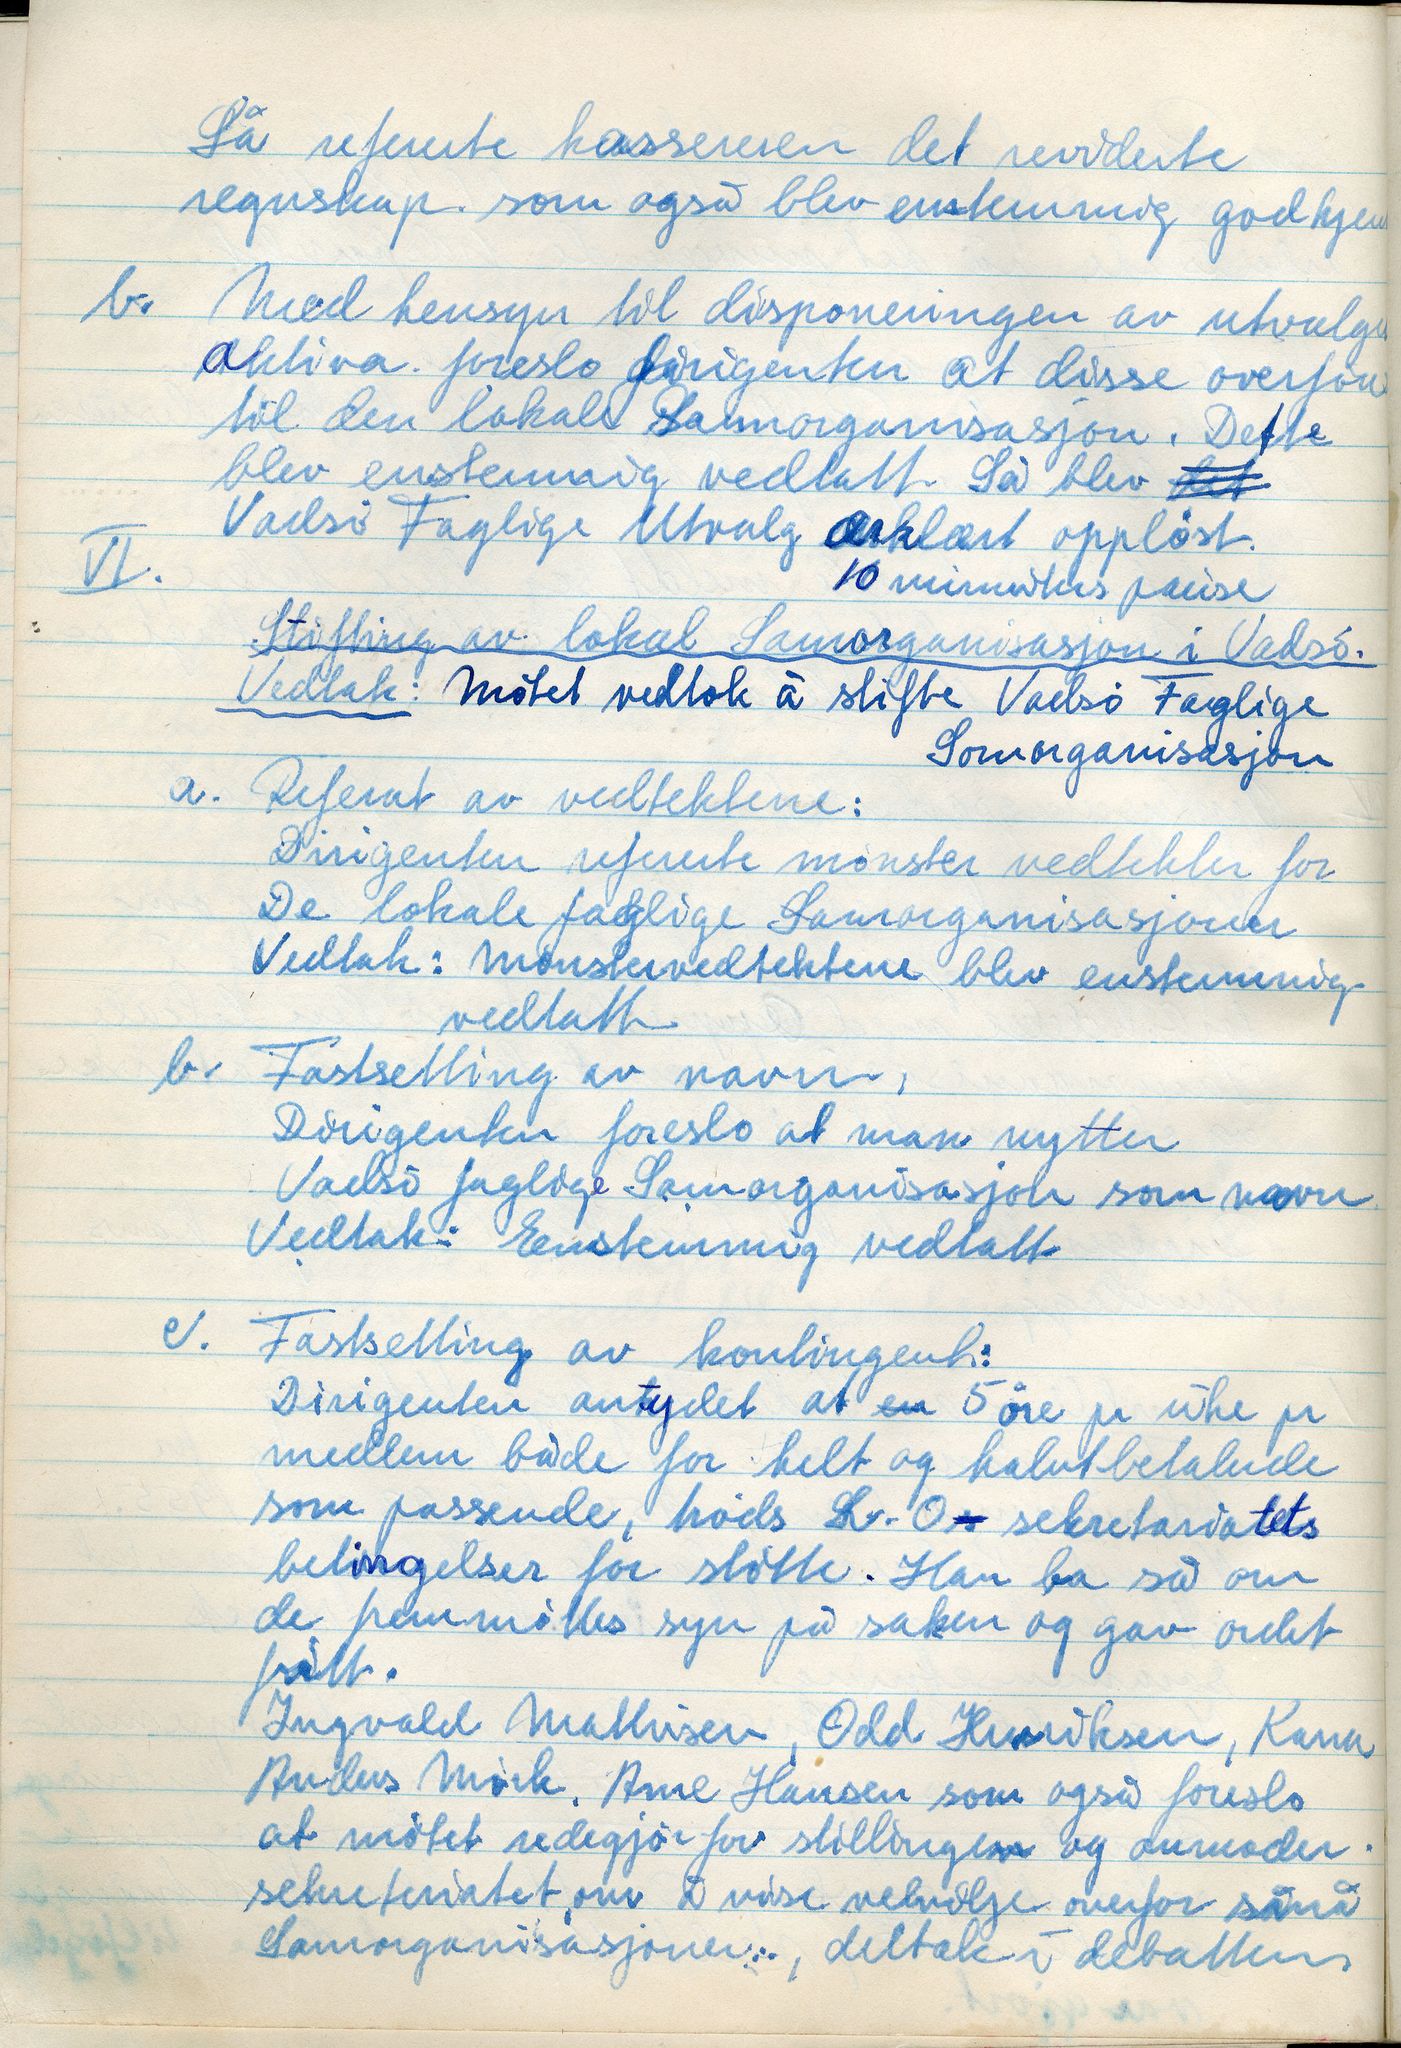 Så referte kassereren det reviderte
regnskap. som også blev enstemmig godkjen
b. Med hensyn til disponeringen av utvalge
aktiva. foreslo dirigenten at disse overför
til den lokale Samorganisasjon. Dette
blev enstemmig vedtatt. Så blev det
Vadsö Faglige Utvalg erklært opplöst.
VI. 10 minutters pause
Stifting av lokal Samorganisasjon i Vadsö.
Vedtak: Mötet vedtok å stifte Vadsö Faglige
Samorganisasjon
a. Referat av vedtektene:
Dirigenten referte mönster vedtekter for
De lokale faglige Samorganisasjoner
Vedtak: Mönstervedtektene blev enstemmig
vedtatt.
b. Fastsetting av navn.
Dirigenten foreslo at man nytter
Vadsö faglige Samorganisasjon som navn.
Vedtak: Enstemmig vedtatt
c. Fastsetting av kontingent:
Dirigenten antydet at en 5 öre pr uke pr
medlem både for helt og halvtbetalende
som passende, tröds L.O.s sekretariatets
betingelser for stötte. Han ba så om
de fremmöttes syn på saken og gav ordet
fritt.
Ingvald Mathisen, Odd Henriksen,
Anders Mörk. Arne Hansen som også foreslo
at mötet redegjör for stillingen og anmoder
sekreteriatet om å vise velvilje overfor små
Samorganisasjoner., deltok i debatten